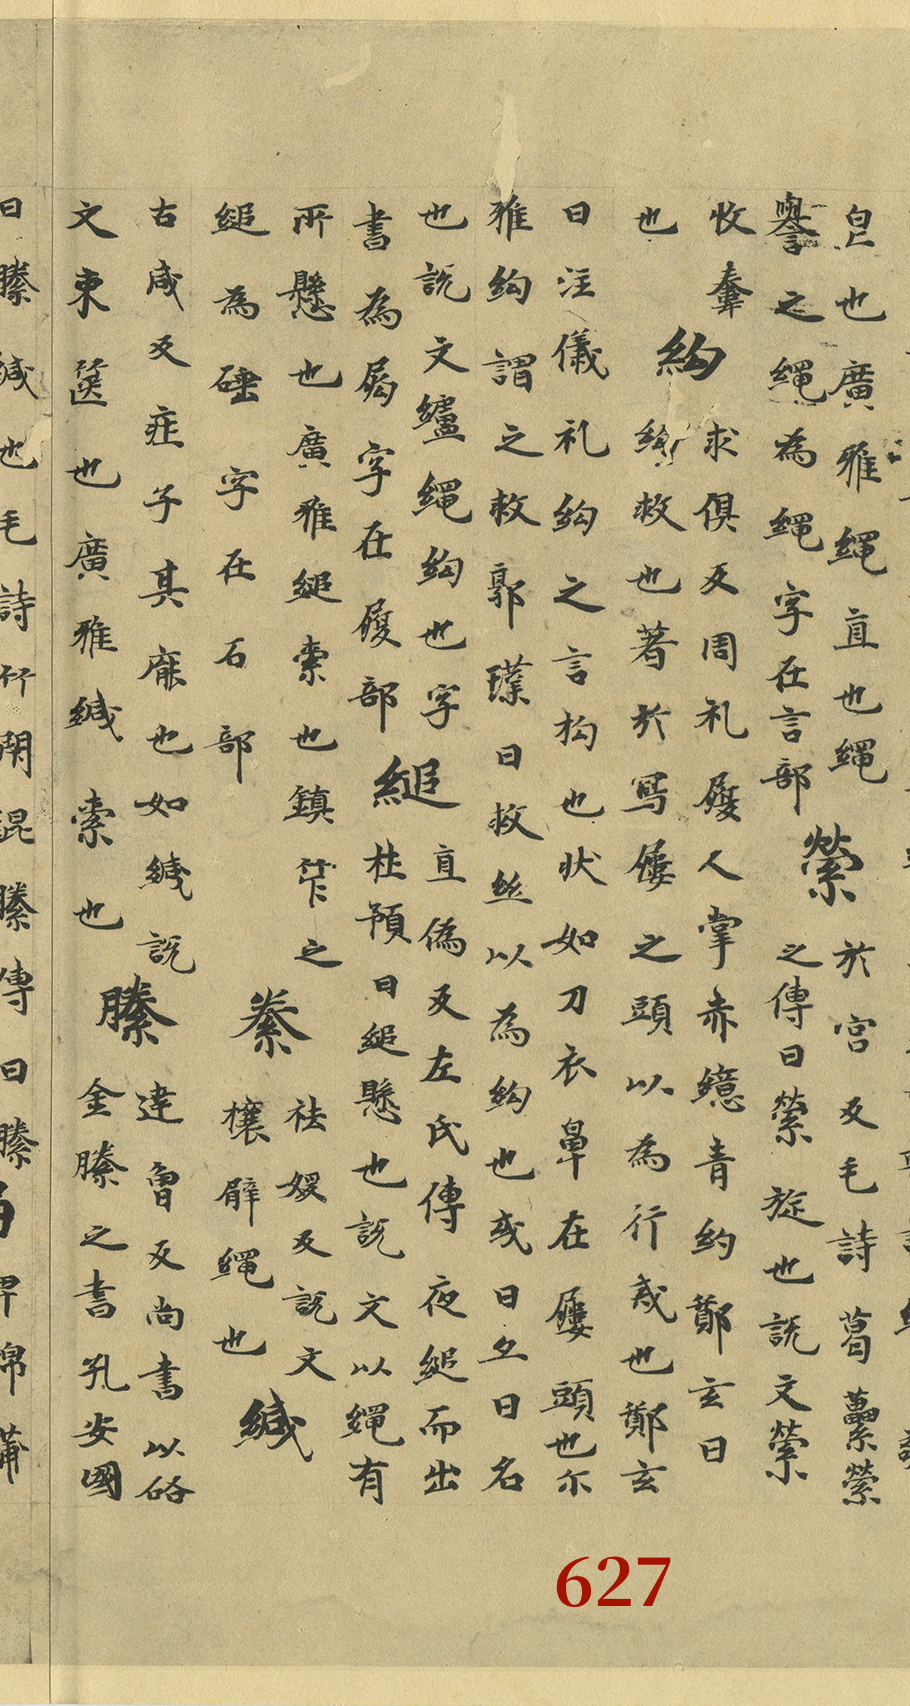 皀也廣雅繩直也繩
譽之繩為繩字在言部
縈
於宮反毛詩葛藟縈
之傳曰縈旋也說文縈
收𦎧
也
絇
求俱反周礼屨人掌赤繶青約鄭玄曰
絇救也著於舄屨之頭以為行戒也鄭玄
曰注儀礼絇之言拘也狀如刀衣鼻在屨頭也尒
雅絇謂之救郭璞曰救絲以為絇也或曰亦曰名
也說文纑繩絇也字
書為𡲰字在履部
縋
直偽反左氏傳夜縋而出
杜預曰縋懸也說文以繩有
所懸也廣雅縋索也鎮笮之
縋為硾字在石部
絭
袪媛反說文
攘臂繩也
緘
古咸反症子其龐也如緘說
文束篋也廣雅緘索也
縢
達曾反尚書以啓
金縢之書孔安國
曰縢緘也毛詩竹閉緄縢傳曰縢
627